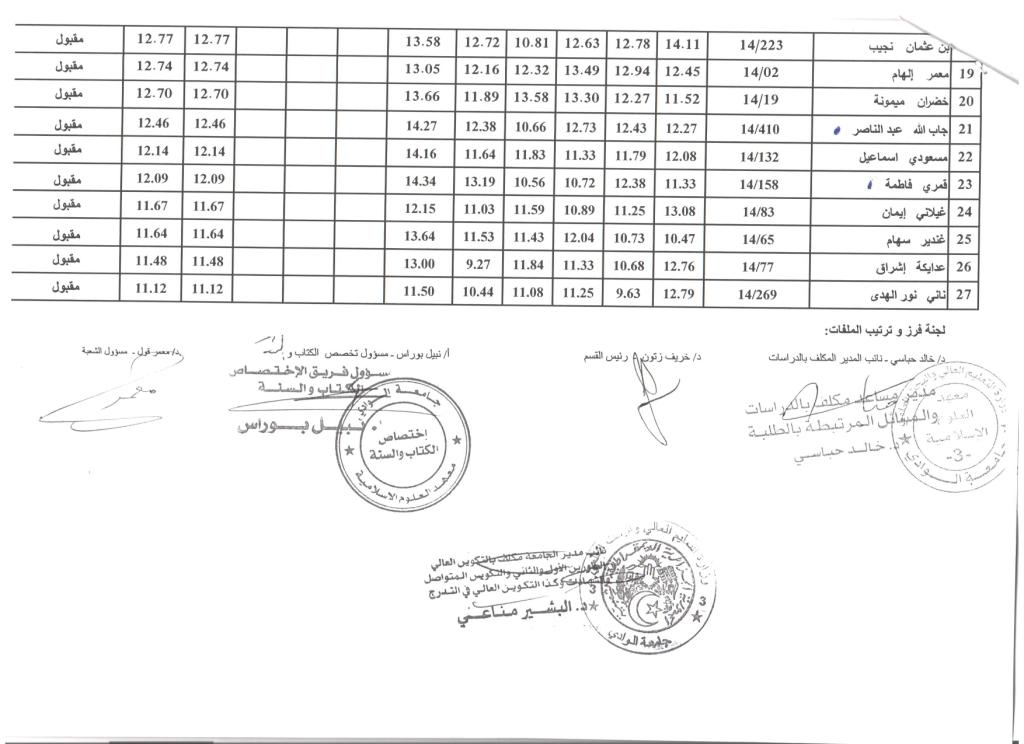 بن عثمان نجيب 14/223 14.11 12.78 12.63 10.81 12.72 13.58 12.77 12.77 مقبول
19 معمر إلهام 14/02 12.45 12.94 13.49 12.32 12.16 13.05 12.74 12.74 مقبول
20 خضران ميمونة 14/19 11.52 12.27 13.30 13.58 11.89 13.66 12.70 12.70 مقبول
21 جاب الله عبد الناصر 14/410 12.27 12.43 12.73 10.66 12.38 14.27 12.46 12.46 مقبول
22 مسعودي اسماعيل 14/132 12.08 11.79 11.33 11.83 11.64 14.16 12.14 12.14 مقبول
23 قمري فاطمة 14/158 11.33 12.38 10.72 10.56 13.19 14.34 12.09 12.09 مقبول
24 غيلاني إيمان 14/83 13.08 11.25 10.89 11.59 11.03 12.15 11.67 11.67 مقبول
25 غندير سهام 14/65 10.47 10.73 12.04 11.43 11.53 13.64 11.64 11.64 مقبول
26 عدايكة إشراق 14/77 12.76 10.68 11.33 11.84 9.27 13.00 11.48 11.48 مقبول
27 ناني نور الهدى 14/269 12.79 9.63 11.25 11.08 10.44 11.50 11.12 11.12 مقبول
لجنة فرز و ترتيب الملفات:
د/ خالد حباسي - نائب المدير المكلف بالدراسات
د/ خريف زتون - رئيس القسم
أ/ نبيل بوراس - مسؤول تخصص الكتاب و
د/ معمر قول - مسؤول الشعبة
مدير مساعد مكلف بالدراسات
والمسائل المرتبطة بالطلبة
د. خالد حباسي
معهد
العلوم
الاسلامية
-3-
جامعة الوادي
مسؤول فريق الإختصاص
الكتاب والسنة
أ. نبيل بوراس
جامعة الوادي
إختصاص
الكتاب والسنة
معهد العلوم الاسلامية
معمر
نائب مدير الجامعة مكلف بالتكوين العالي
الطورين الأول والثاني والتكوين المتواصل
والشهادات وكذا التكوين العالي في التدرج
د. البشير مناعي
3
3
جامعة الوادي